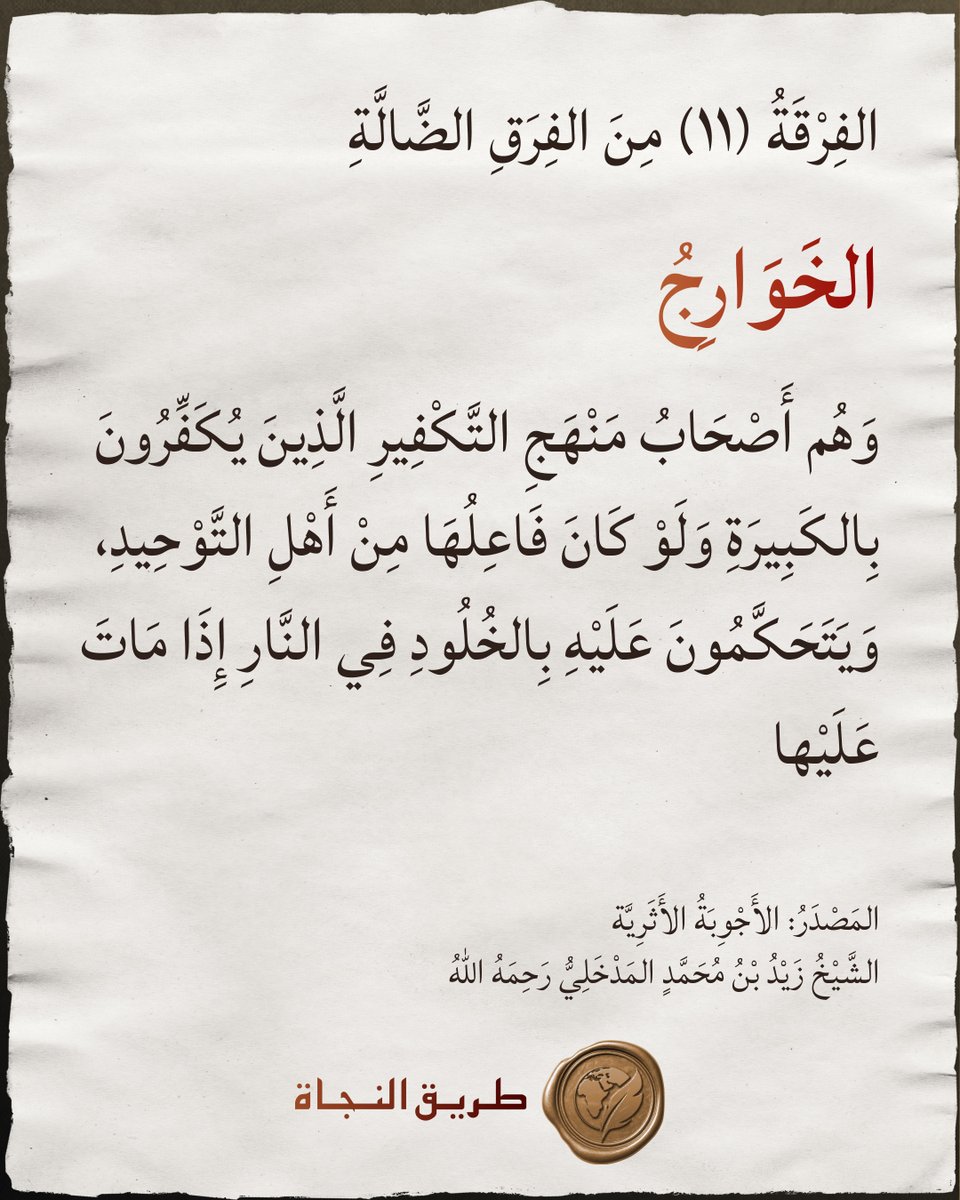 الفِرْقَةُ (١١) مِنَ الفِرَقِ الضَّالَّةِ
الخَوَارِجُ
وَهُم أَصْحَابُ مَنْهَجِ التَّكْفِيرِ الَّذِينَ يُكَفِّرُونَ
بِالكَبِيرَةِ وَلَوْ كَانَ فَاعِلُهَا مِنْ أَهْلِ التَّوْحِيدِ،
وَيَتَحَكَّمُونَ عَلَيْهِ بِالخُلُودِ فِي النَّارِ إِذَا مَاتَ
عَلَيْها
المَصْدَرُ: الأَجْوِبَةُ الأَثَرِيَّة
الشَّيْخُ زَيْدُ بْنُ مُحَمَّدٍ المَدْخَلِيُّ رَحِمَهُ اللهُ
طريق النجاة